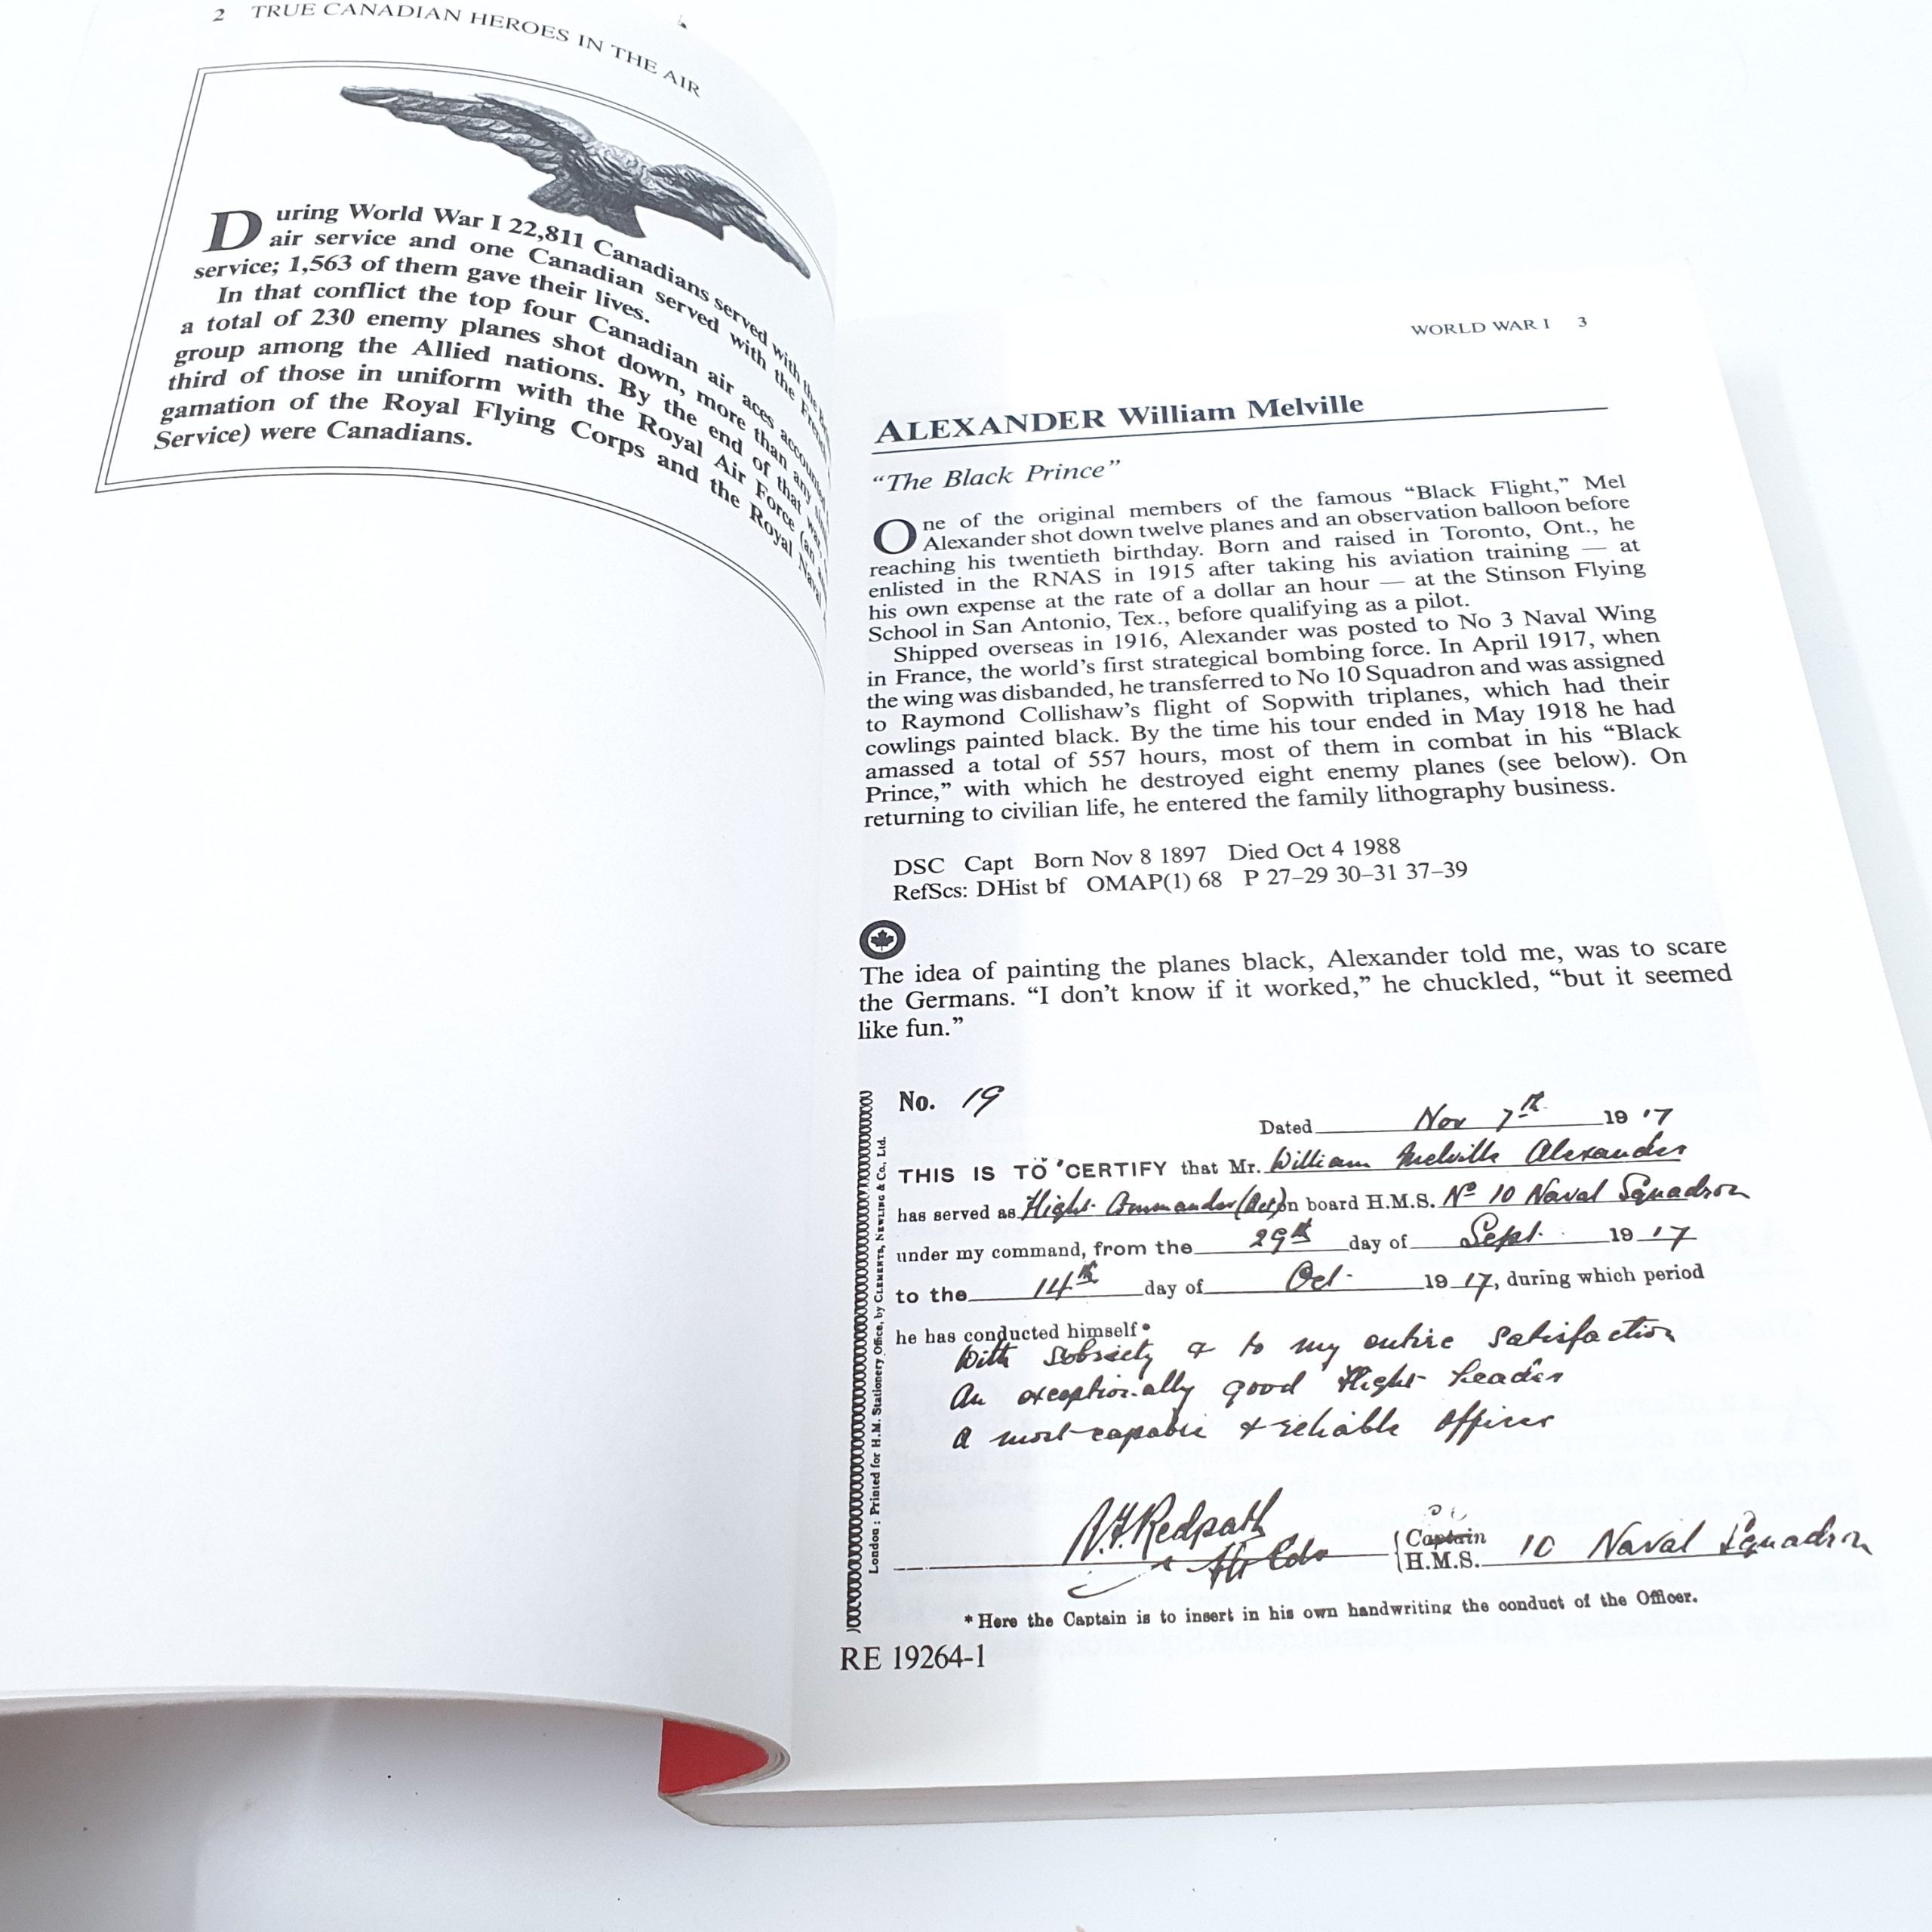 2 TRUE CANADIAN HEROES IN THE AIR
During World War I 22,811 Canadians served with the
air service and one Canadian served with the French
service; 1,563 of them gave their lives.
In that conflict the top four Canadian air aces
a total of 230 enemy planes shot down, more than any
group among the Allied nations. By the end of that war,
third of those in uniform with the Royal Air Force (an
gamation of the Royal Flying Corps and the Royal Naval
Service) were Canadians.
WORLD WAR I 3
ALEXANDER William Melville
“The Black Prince”
One of the original members of the famous “Black Flight,” Mel
Alexander shot down twelve planes and an observation balloon before
reaching his twentieth birthday. Born and raised in Toronto, Ont., he
enlisted in the RNAS in 1915 after taking his aviation training — at
his own expense at the rate of a dollar an hour — at the Stinson Flying
School in San Antonio, Tex., before qualifying as a pilot.
Shipped overseas in 1916, Alexander was posted to No 3 Naval Wing
in France, the world’s first strategical bombing force. In April 1917, when
the wing was disbanded, he transferred to No 10 Squadron and was assigned
to Raymond Collishaw’s flight of Sopwith triplanes, which had their
cowlings painted black. By the time his tour ended in May 1918 he had
amassed a total of 557 hours, most of them in combat in his “Black
Prince,” with which he destroyed eight enemy planes (see below). On
returning to civilian life, he entered the family lithography business.
DSC Capt Born Nov 8 1897 Died Oct 4 1988
RefScs: DHist bf OMAP(1) 68 P 27–29 30–31 37–39
The idea of painting the planes black, Alexander told me, was to scare
the Germans. “I don’t know if it worked,” he chuckled, “but it seemed
like fun.”
London : Printed for H.M. Stationery Office, by CLEMENTS, NEWLING & Co., Ltd.
No. 19
Dated Nov 7th 19 '17
THIS IS TO CERTIFY that Mr. William Melville Alexander
has served as Flight Commander (Act) on board H.M.S. No 10 Naval Squadron
under my command, from the 29th day of Sept. 19 '17
to the 14th day of Oct. 19 17, during which period
he has conducted himself*
With sobriety & to my entire satisfaction
An exceptionally good flight leader
A most capable & reliable officer
Redpath
Captain
H.M.S. 10 Naval Squadron
* Here the Captain is to insert in his own handwriting the conduct of the Officer.
RE 19264-1